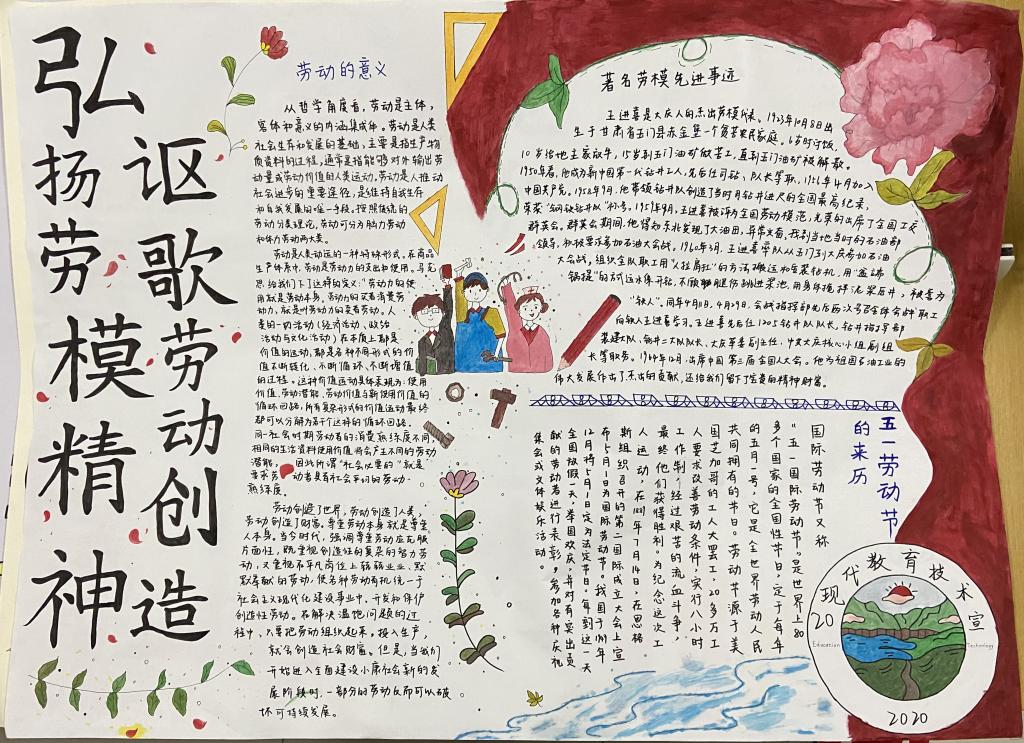 弘扬劳模精神
讴歌劳动创造
劳动的意义
从哲学角度看，劳动是主体，
客体和意义的内涵集成体。劳动是人类
社会生存和发展的基础，主要是指生产物
质资料的过程，通常是指能够对外输出劳
动量或劳动价值的人类运动。劳动是人推动
社会进步的重要途径，是维持自我生存
和自我发展的唯一手段。按照传统的
劳动分类理论，劳动可分为脑力劳动
和体力劳动两大类。
劳动是人类运动的一种特殊形式。在商品
生产体系中，劳动是劳动力的支出和使用。马克
思给我们下了这样的定义：“劳动力的使
用就是劳动本身，劳动力的买者消费劳
动力，就是叫劳动力的卖者劳动。人
类的一切活动（经济活动、政治
活动与文化活动）在本质上都是
价值的运动，都是各种不同形式的价
值不断转化、不断循环、不断增值
的过程。这种价值运动具体表现为：使用
价值、劳动潜能、劳动价值与新使用价值的
循环回路，所有复杂形式的价值运动最终
都可以分解为若干个这样的循环回路。
同一社会时期劳动者的消费熟练度不同
相同的生活资料使用价值将会产生不同的劳动
潜能，因此所谓“社会必要的”就是
要求劳动者具有社会平均的劳动
熟练度。
劳动创造了世界，劳动创造了人类，
劳动创造了财富。尊重劳动本身就是尊重
人本身。当今时代，强调尊重劳动应克服
片面性，既重视创造性的复杂的智力劳
动，又重视在平凡岗位上兢兢业业、默
默奉献的劳动，使各种劳动有机统一于
社会主义现代化建设事业中，开发和保护
创造性劳动。在解决温饱问题的过
程中，只要把劳动组织起来，投入生产，
就会创造社会财富。但是，当我们
开始进入全面建设小康社会新的发
展阶段时，一部分的劳动反而可以破
坏可持续发展。
著名劳模先进事迹
王进喜是大庆人的杰出劳模代表。1923年10月8日出
生于甘肃省玉门县赤金堡一个贫苦农民家庭。6岁时讨饭，
10岁给地主家放牛，15岁到玉门油矿做苦工，直到玉门油矿被解放。
1950年春，他成为新中国第一代钻井工人，先后任司钻、队长等职，1956年4月加入
中国共产党。1958年9月，他带领钻井队创造了当时月钻井进尺的全国最高纪录，
荣获“钢铁钻井队”称号。1959年9月，王进喜被评为全国劳动模范，光荣的出席了全国工交
群英会。群英会期间，他得知东北发现了大油田，异常兴奋，找到当地当时的石油部
领导，积极要求参加石油大会战。1960年3月，王进喜率队从玉门到大庆参加石油
大会战，组织全队职工用“人拉肩扛”的方法搬运和安装钻机，用“盆端
桶提”的方式运水保开钻，不顾腿伤跳进泥浆池，用身体搅拌泥浆压井，被誉为
“铁人”。同年4月11日、4月29日，会战指挥部先后两次号召全体会战职工
向铁人王进喜学习。王进喜先后任1205钻井队队长、钻井指挥部
钻井二大队队长、大庆革委副主任、中共大庆核心小组副组
长等职务。1964年12月，出席中国第三届全国人大会。他为祖国石油工业的
伟大发展作出了杰出的贡献，还给我们留下了宝贵的精神财富。
五一劳动节
的来历
国际劳动节又称
“五一国际劳动节”，是世界上80
多个国家的全国性节日，定于每年
的五月一号，它是全世界劳动人民
共同拥有的节日。劳动节源于美
国芝加哥的工人大罢工，20多万工
人要求改善劳动条件，实行八小时
工作制，经过艰苦的流血斗争，
最终他们获得胜利。为纪念这次工
人运动，在1889年7月14日，在恩格
斯组织召开的第二国际成立大会上宣
布5月1日为国际劳动节。我国于1949年
12月将5月1日定为法定节日，每到这一天
全国放假一天，举国欢庆，并对有突出贡
献的劳动者进行表彰，参加各种庆祝
集会或文体娱乐活动。
现代教育技术宣
20
Education
Technology
2020